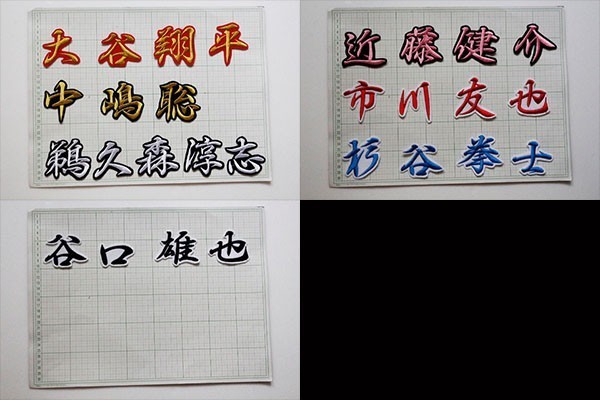 大谷翔平
中嶋聡
鵜久森淳志
近藤健介
市川友也
杉谷拳士
谷口雄也